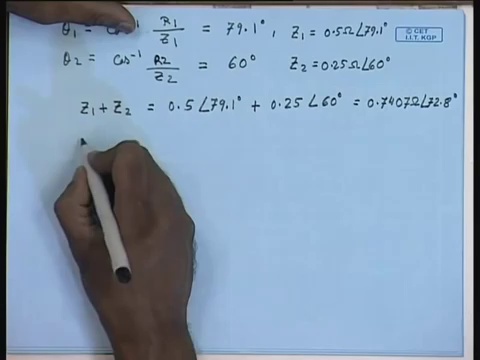 θ1 = cos⁻¹ R1/Z1 = 79.1°, Z1 = 0.5Ω∠79.1°
© CET
I.I.T. KGP
θ2 = cos⁻¹ R2/Z2 = 60° Z2 = 0.25Ω∠60°
Z1 + Z2 = 0.5∠79.1° + 0.25∠60° = 0.7407Ω∠72.8°